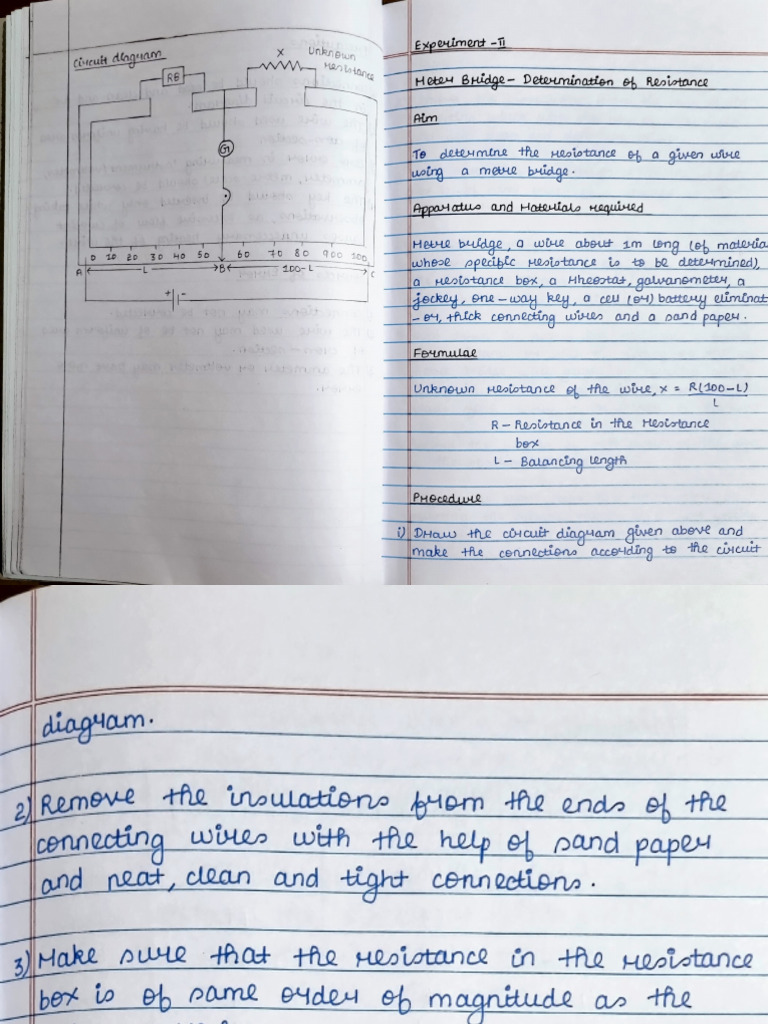 Circuit diagram
X
Unknown
resistance
RB
G
0 10 20 30 40 50 60 70 80 900 100
A L B 100-L C
+ -
Experiment - II
Meter Bridge - Determination of Resistance
Aim
To determine the resistance of a given wire
using a metre bridge.
Apparatus and Materials required
Metre bridge, a wire about 1m long (of materia
whose specific resistance is to be determined),
a resistance box, a rheostat, galvanometer, a
jockey, one-way key, a cell (or) battery eliminat
-or, thick connecting wires and a sand paper.
Formulae
Unknown resistance of the wire, x = R(100-L)
L
R - Resistance in the resistance
box
L - Balancing length
Procedure
i) Draw the circuit diagram given above and
make the connections according to the circuit
diagram.
2) Remove the insulations from the ends of the
connecting wires with the help of sand paper
and neat, clean and tight connections.
3) Make sure that the resistance in the resistance
box is of same order of magnitude as the